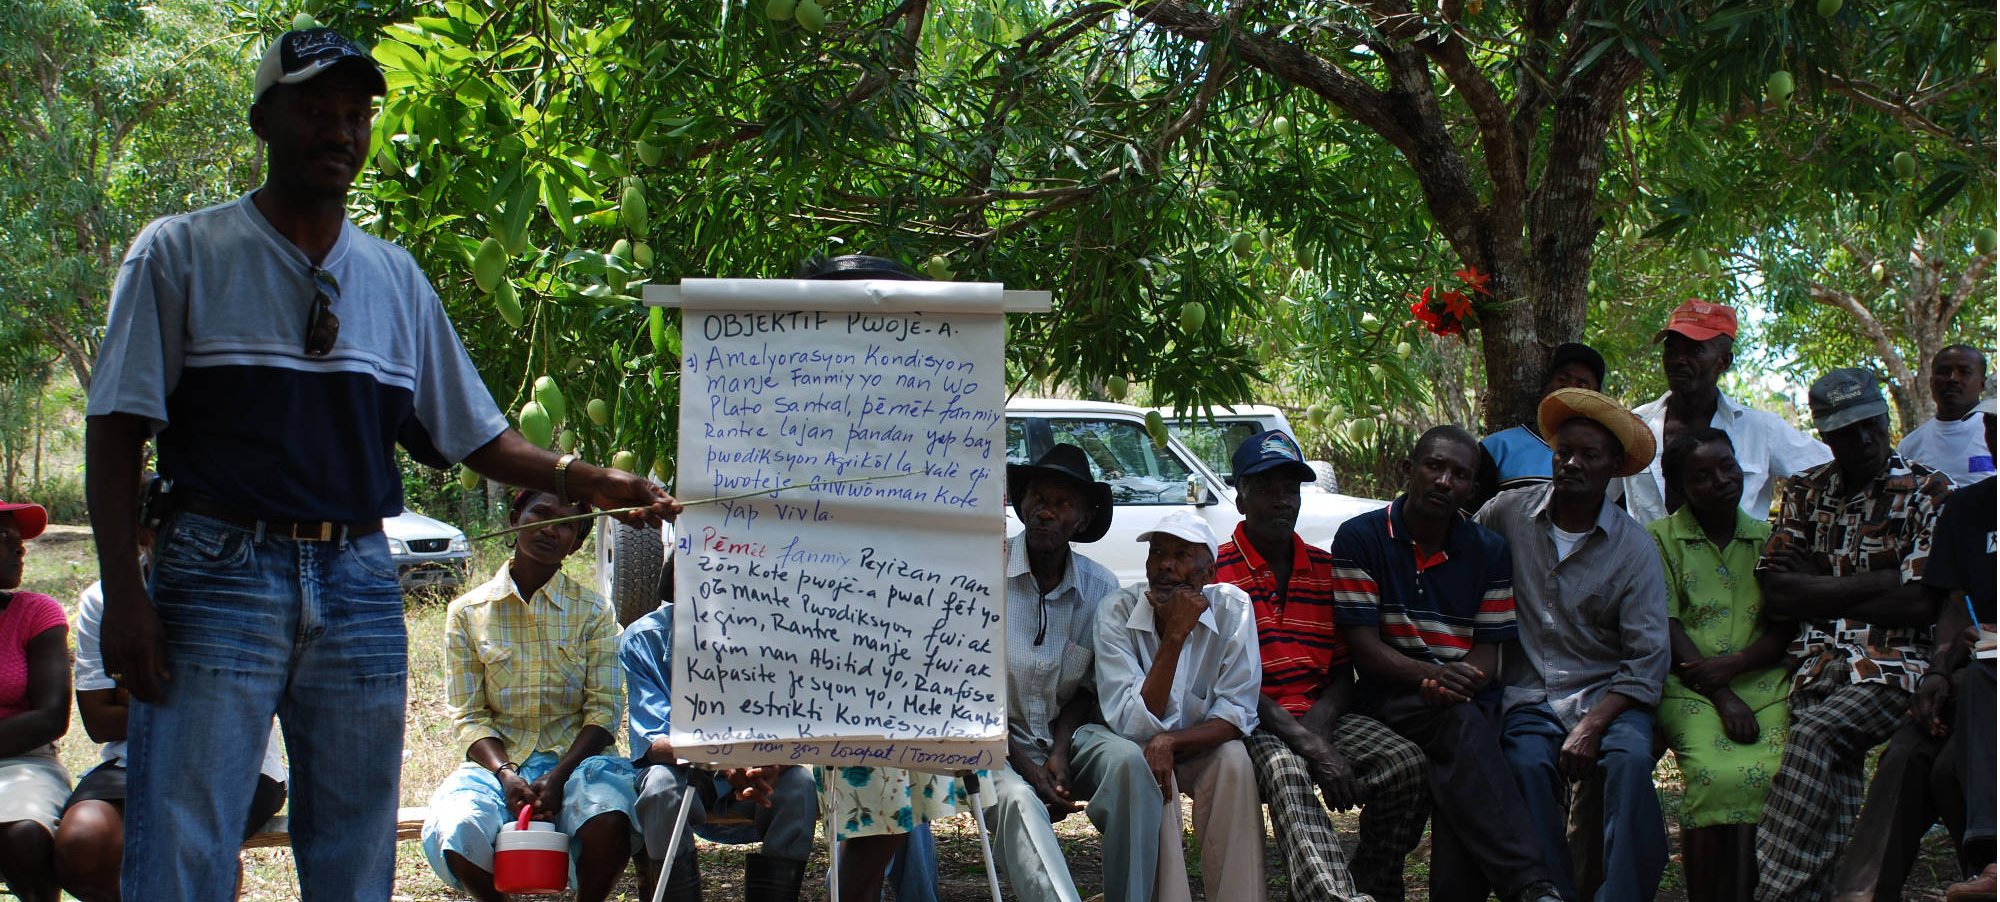 OBJEKTIF PWOJÈ-A.
1) Amelyorasyon Kondisyon
manje Fanmiy yo nan Wo
Plato Santral, pèmèt fanmiy
Rantre lajan pandan yap bay
pwodiksyon Agrikòl la valè epi
pwoteje anviwònman kote
yap viv la.
2) Pèmèt fanmiy Peyizan nan
zòn kote pwojè-a pwal fèt yo
ogmante Pwodiksyon fwi ak
legim, Rantre manje fwi ak
legim nan Abitid yo, Ranfòse
Kapasite jesyon yo, Mete Kanpe
yon estrikti Komèsyaliz
andedan
50 nan zòn Lospat (Tomond)